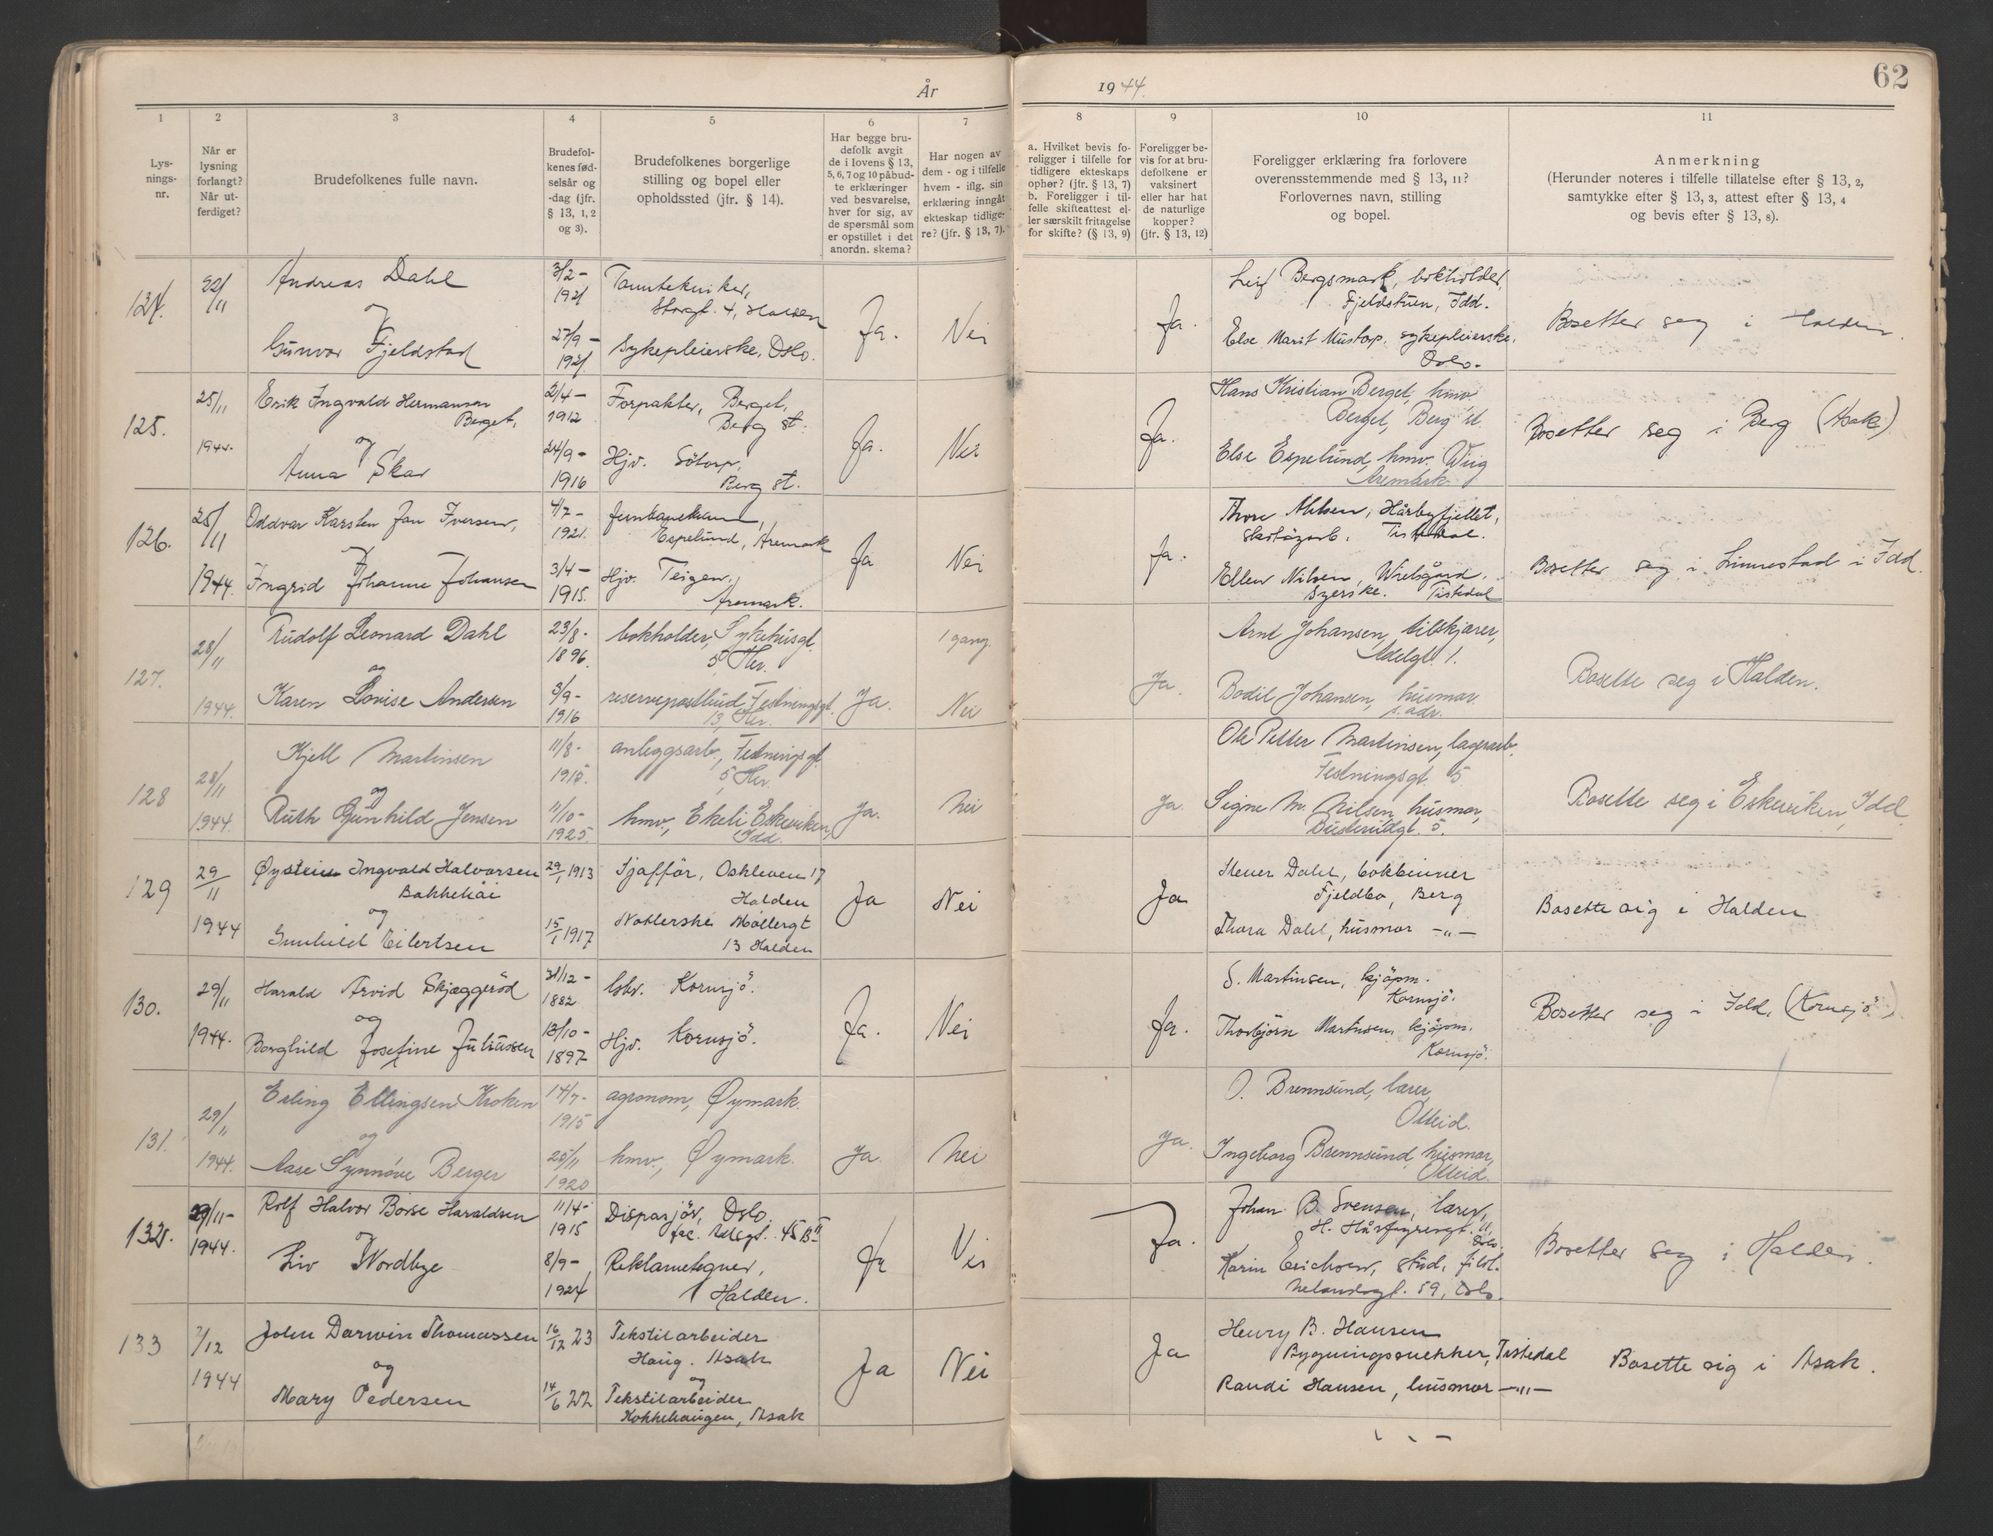 År
1944.
62
1
2
3
4
5
6
7
8
9
10
11
Lys-
nings-
nr.
Når er
lysning
forlangt?
Når ut-
ferdiget?
Brudefolkenes fulle navn.
Brudefol-
kenes fød-
selsår og
-dag (jfr.
§ 13, 1, 2
og 3).
Brudefolkenes borgerlige
stilling og bopel eller
opholdssted (jfr. § 14).
Har begge bru-
defolk avgit
de i lovens § 13,
5, 6, 7 og 10 påbud-
te erklæringer
ved besvarelse,
hver for sig, av
de spørsmål som
er opstillet i det
anordn. skema?
Har nogen av
dem - og i tilfelle
hvem - iflg. sin
erklæring inngått
ekteskap tidlige-
re? (jfr. § 13, 7).
a. Hvilket bevis fo-
religger i tilfelle for
tidligere ekteskaps
ophør? (jfr. § 13, 7)
b. Foreligger i til-
felle skifteattest el-
ler særskilt fritagelse
for skifte? (§ 13, 9)
Foreligger be-
vis for at bru-
defolkene er
vaksinert
eller har hat
de naturlige
kopper?
(jfr. § 13, 12)
Foreligger erklæring fra forlovere
overensstemmende med § 13, 11?
Forlovernes navn, stilling
og bopel.
Anmerkning
(Herunder noteres i tilfelle tillatelse efter § 13, 2,
samtykke efter § 13, 3, attest efter § 13, 4
og bevis efter § 13, 8).
124.
22/11
Andreas Dahl
og
Gunvor Fjeldstad
3/2-
1921
27/9-
1921
Tanntekniker,
Storgt. 4, Halden
Sykepleierske, Oslo.
Ja.
Nei
Ja.
Leif Bergsmark, bokholder,
Fjeldstuen, Idd.
Else Marit Mustorp, sykepleierske,
Oslo.
Bosetter seg i Halden.
125.
25/11
1944.
Erik Ingvald Hermansen
Berget,
og
Anna Skar
21/4-
1912
24/9-
1916
Forpakter, Berget,
Berg st.
Hjv. Sötorp,
Berg st.
Ja.
Nei
Ja.
Hans Kristian Berget, hmv.
Berget, Berg st.
Else Espelund, hmv. Wiig
Aremark.
Bosetter seg i Berg (Asak)
126.
25/11
1944.
Oddvar Karsten Jan Iversen,
og
Ingrid Johanne Johansen
4/7-
1921.
3/4-
1915.
Jernbanemann,
Espelund, Aremark
Hjv. Teigen,
Aremark.
Ja
Nei
Ja.
Thore Nilsen, Hårbyfjellet,
Skotözarb. Tistedal.
Ellen Nilsen, Wielsgård,
Syerske. Tistedal
Bosetter seg i Linnestad i Idd.
127.
28/11
1944.
Rudolf Leonard Dahl
og
Karen Lovise Andersen
23/8-
1896.
3/9-
1916
bokholder, Sykehusgt.
5 Her.
reservepostbud Festningsgt.
13, Her.
Ja.
1 gang.
Nei
Ja.
Arnt Johansen, bilskjører,
Adelgt. 1.
Bodil Johansen, husmor
s. adr.
Bosette seg i Halden.
128
28/11
1944.
Kjell Martinsen
og
Ruth Gunhild Jensen
11/8-
1915.
11/10-
1925.
anleggsarb., Festningsgt.
5, Her.
hmv., Ekeli Eskeviken,
Idd.
Ja.
Nei
Ja.
Ole Petter Martinsen, lagerarb.
Festningsgt. 5
Signe M. Nilsen, husmor,
Busterudgt. 5.
Bosette seg i Eskeviken, Idd.
129
29/11
1944
Øystein Ingvald Halvorsen
Bakkehåi
og
Gunhild Eilertsen
29/1 1913
15/1 1917
Sjafför, Oskleven 17
Halden
Noblerske Möllergt
13 Halden
Ja
Nei
Ja
Stener Dahl, bokbinner
Fjeldbo, Berg
Thora Dahl, husmor -"-
Bosette sig i Halden
130.
29/11
1944.
Harald Arvid Skjæggeröd
og
Borghild Josefine Juliussen
31/12-
1882
13/10-
1897
Gbr. Kornsjö.
Hjv. Kornsjö.
Ja.
Nei
Ja.
S. Martinsen, kjöpm.
Kornsjö.
Thorbjörn Martinsen, kjöpm.
Kornsjö.
Bosetter seg i Idd. (Kornsjö)
131.
29/11
1944.
Erling Ellingsen Kroken
og
Aase Synnøve Berger
14/7-
1915
25/11
1920
agronom, Øymark.
hmv., Øymark.
Ja
Nei
Ja.
O. Brennsund, lærer,
Otteid.
Ingeborg Brennsund, husmor,
Otteid.
132.
29/11-
1944.
Rolf Halvor Börse Haraldsen
og
Liv Nordbye
11/4-
1915
8/9-
1924
Disponjör, Oslo.
45 B II
Reklametegner,
Halden.
Ja
Nei
Ja.
Johan B. Svensen, lærer,
H. Hårfagresgt. 11
Oslo.
Karin Erichsen, stud. filol.
59, Oslo.
Bosetter seg i Halden.
133
2/12
1944
John Darwin Thomassen
og
Mary Pedersen
16/12 23
14/6 22
Tekstilarbeider
Haug. Asak
og
Tekstilarbeider
Kokkehaugen, Asak
Ja
Nei
Ja
Henry B. Hansen
Bygningssnekker, Tistedal
Randi Hansen, husmor -"-
Bosette sig i Asak.